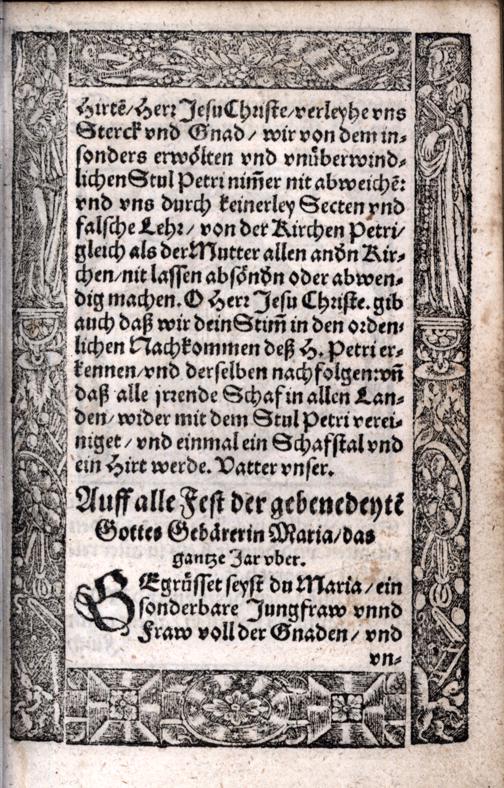 Hirtẽ/ Herr Jesu Christe/ verleyhe vns
Sterck vnd Gnad/ wir von dem in-
sonders erwölten vnd vnüberwind-
lichen Stul Petri nim̃er nit abweichẽ:
vnd vns durch keinerley Secten vnd
falsche Lehr/ von der Kirchen Petri/
gleich als der Mutter allen andn Kir-
chen/ nit lassen absöndn oder abwen-
dig machen. O Herr Jesu Christe. gib
auch daß wir dein Stim̃ in den orden-
lichen Nachkommen deß H. Petri er-
kennen/ vnd derselben nachfolgen: vñ
daß alle jrrende Schaf in allen Lan-
den/ wider mit dem Stul Petri verei-
niget/ vnd einmal ein Schafstal vnd
ein Hirt werde. Vatter vnser.
Auff alle Fest der gebenedeytẽ
Gottes Gebärerin Maria/ das
gantze Jar vber.
GEgrüsset seyst du Maria/ ein
sonderbare Jungfraw vnnd
Fraw voll der Gnaden/ vnd
vn-